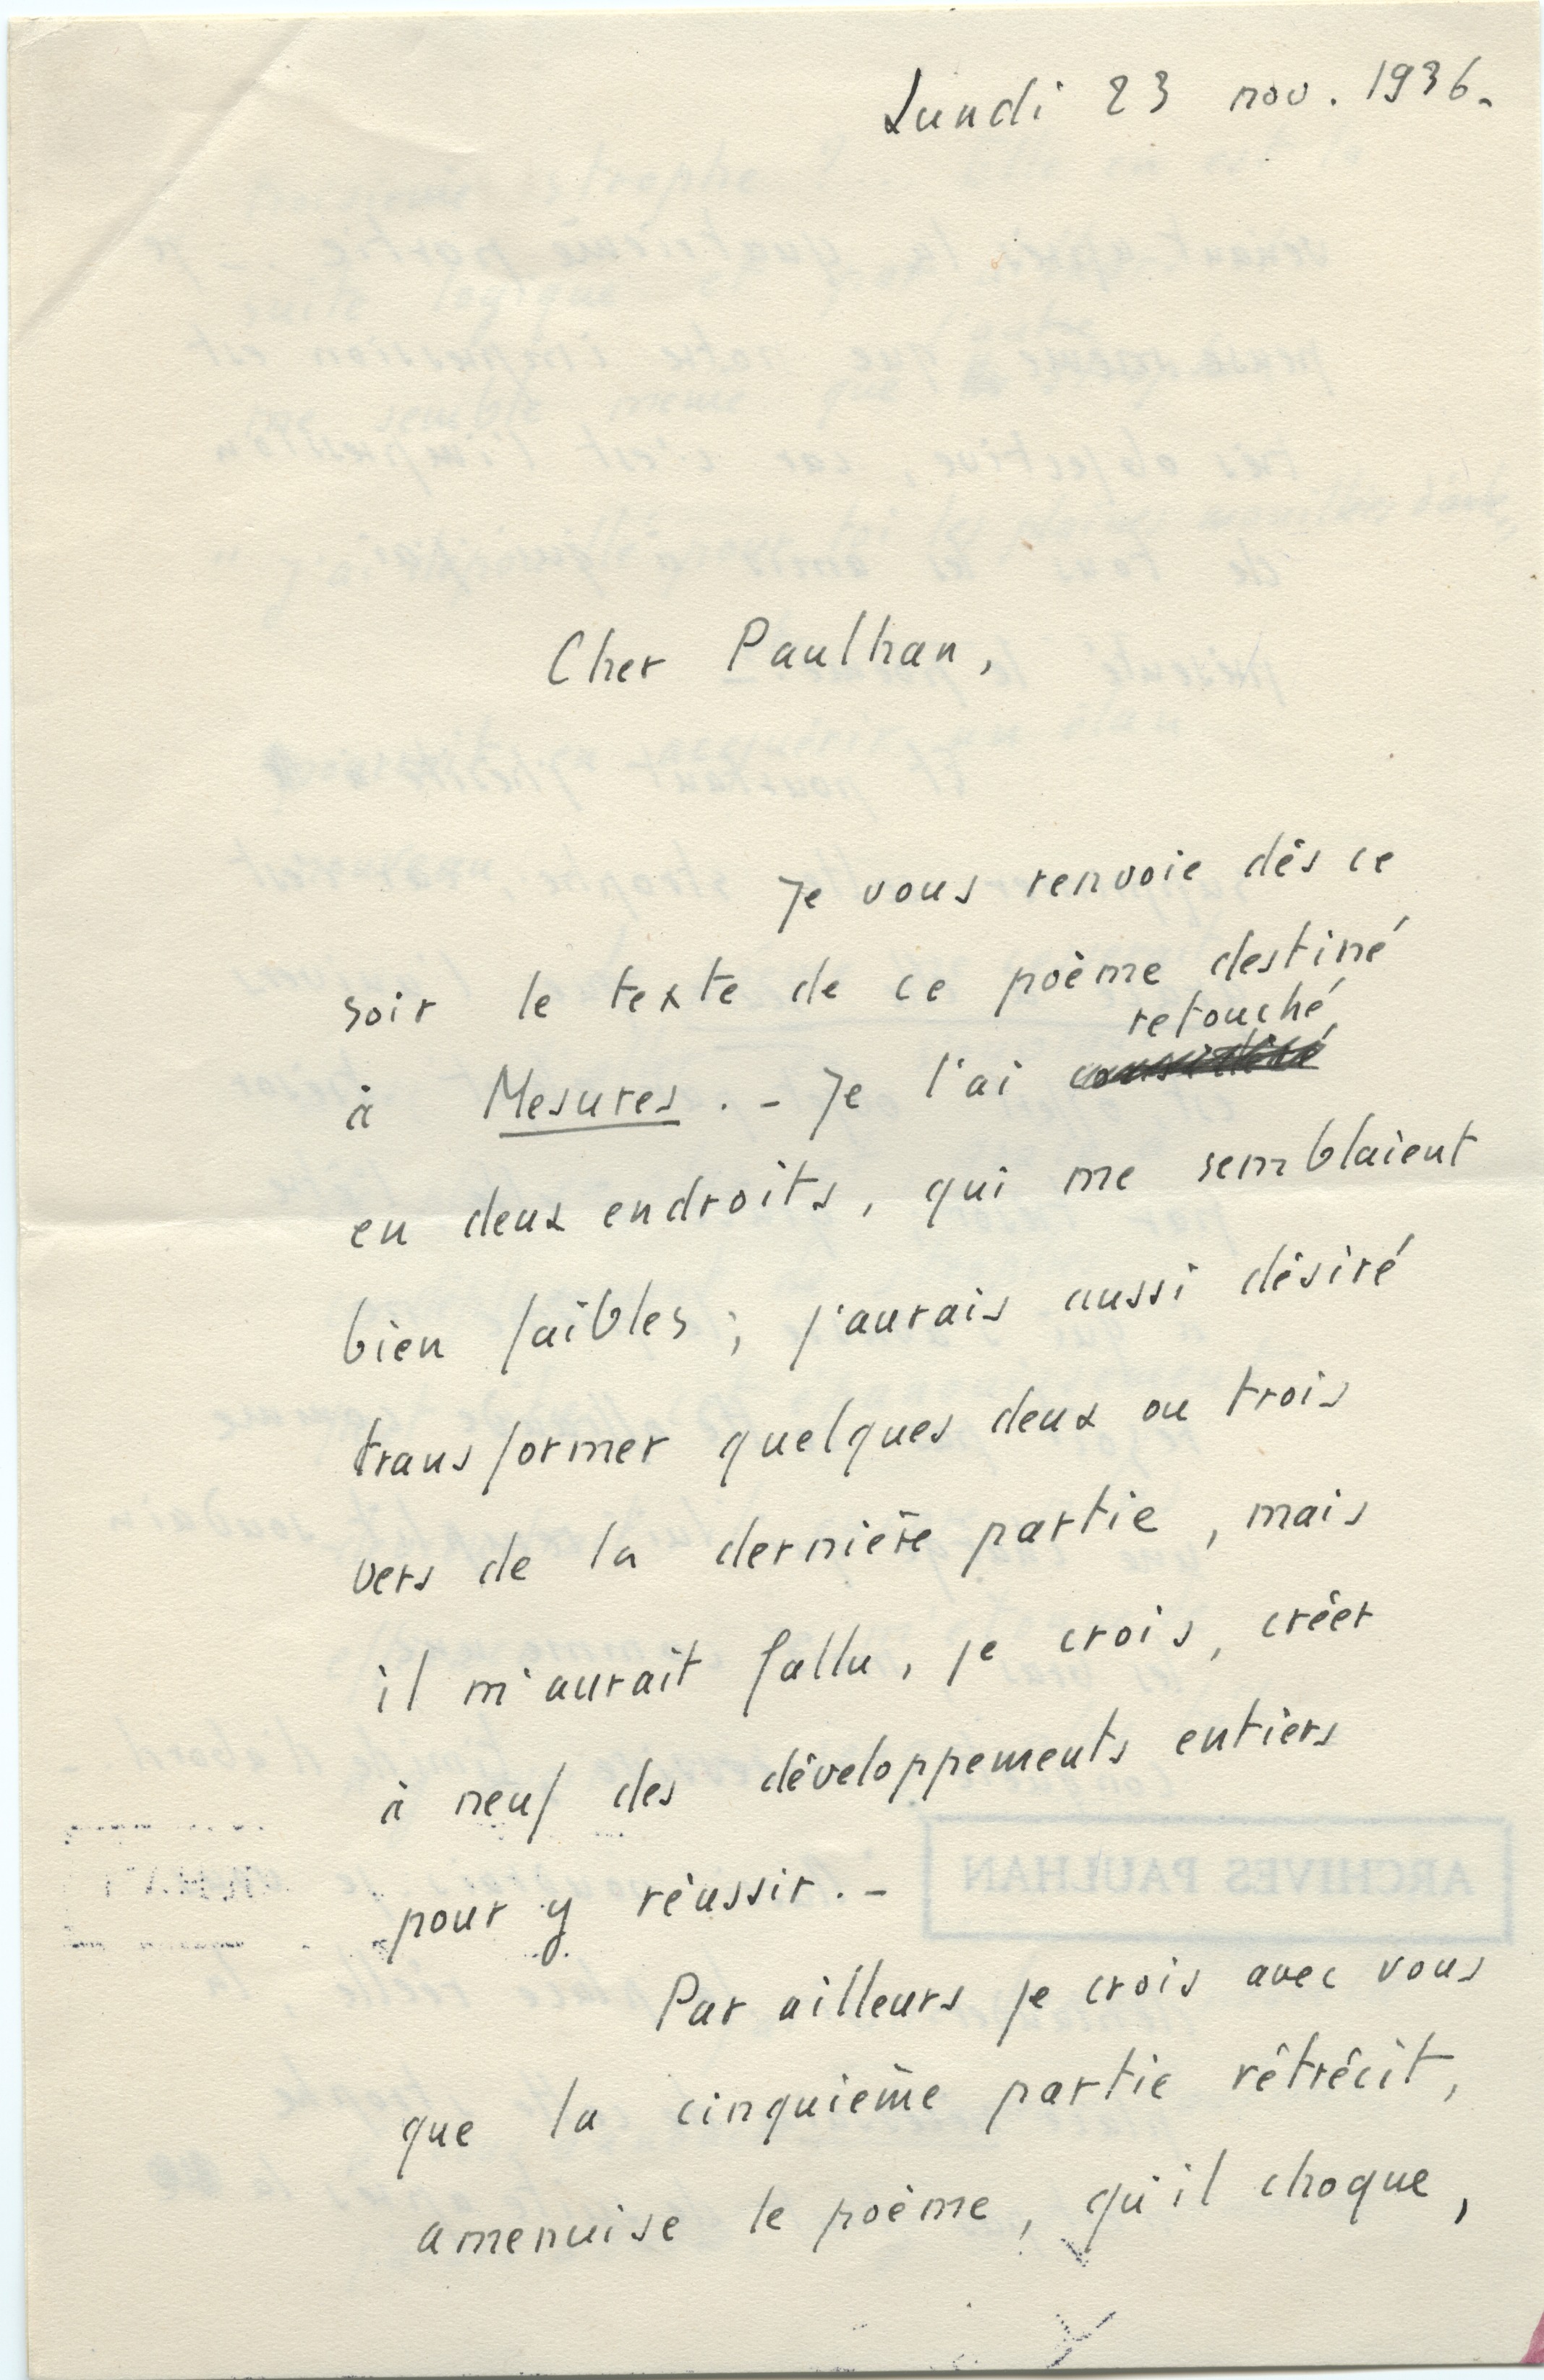 Lundi 23 nov. 1936.
Cher Paulhan,
Je vous renvoie dès ce
soir le texte de ce poème destiné
retouché
à Mesures. - Je l'ai
en deux endroits, qui me semblaient
bien faibles ; j'aurais aussi désiré
transformer quelques deux ou trois
vers de la dernière partie, mais
il m'aurait fallu, je crois, créer
à neuf des développements entiers
pour y réussir. -
ARCHIVES PAULHAN
Par ailleurs je crois avec vous
que la cinquième partie rétrécit,
amenuise le poème, qu'il choque,